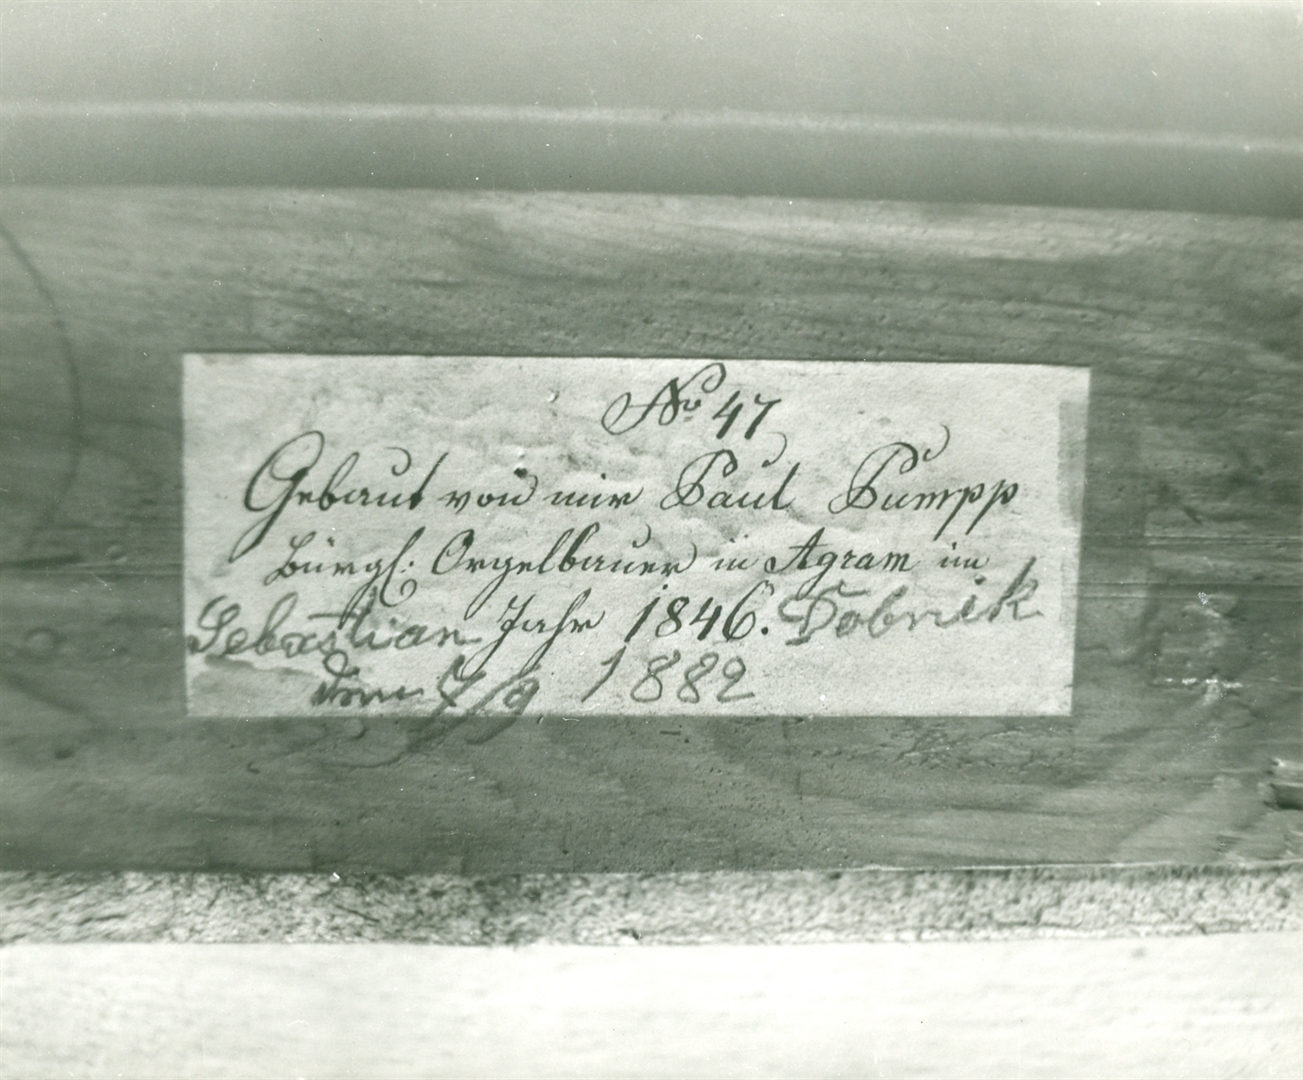 No 47
Gebaut von mir Paul Pumpp
bürgl: Orgelbauer in Agram im
Jahr 1846.
Sebastian Dobnik
1882